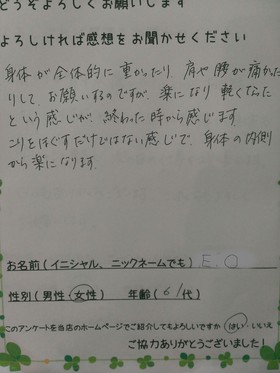 どうぞよろしくお願いします
よろしければ感想をお聞かせください
身体が全体的に重かったり、肩や腰が痛かった
りして、お願いするのですが、楽になり軽くなった
という感じが、終わった時から感じます
こりをほぐすだけではない感じで、身体の内側
から楽になります。
お名前(イニシャル、ニックネームでも) E.O
性別(男性・女性) 年齢( 61代)
このアンケートを当店のホームページでご紹介してもよろしいですか はい・いいえ
ご協力ありがとうございました!